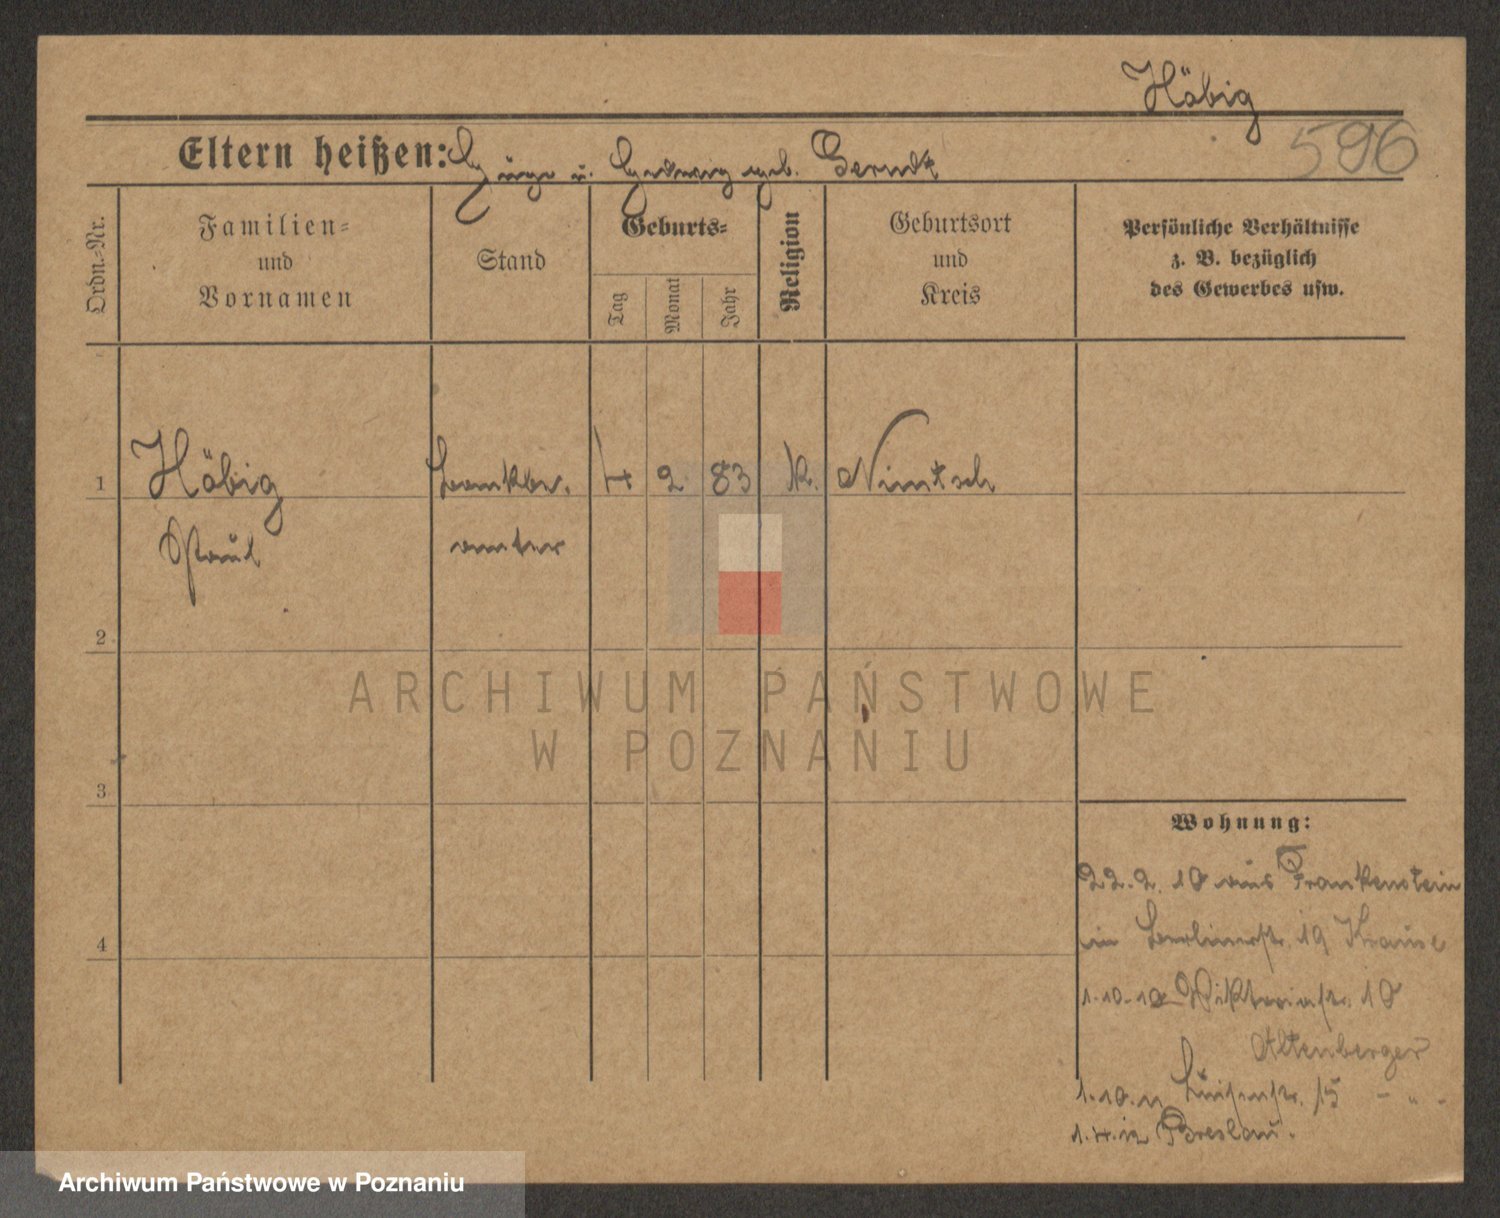 Häbig
596
Eltern heißen: Hugo u. Hedwig geb. Berndt
Ordn.-Nr.
Familien-
und
Vornamen
Stand
Geburts-
Tag
Monat
Jahr
Religion
Geburtsort
und
Kreis
Persönliche Verhältnisse
z. B. bezüglich
des Gewerbes usw.
1
Häbig
Paul
Bankbe.
amter
4 2 83
K.
Nimtsch
2
ARCHIWUM PAŃSTWOWE
W POZNANIU
3
4
Wohnung:
22.2.10 aus Frankenstein
in Berlinerstr. 19 Krause
1.10.10 Viktoriastr. 10
Altenberger
1.10.11 Luisenstr. 15 - " -
1.4.12 Breslau.
Archiwum Państwowe w Poznaniu